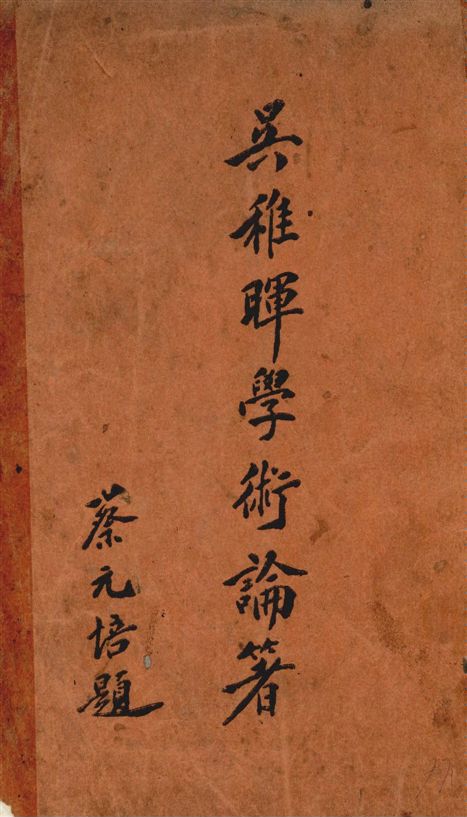 吳稚暉學術論著
蔡元培題